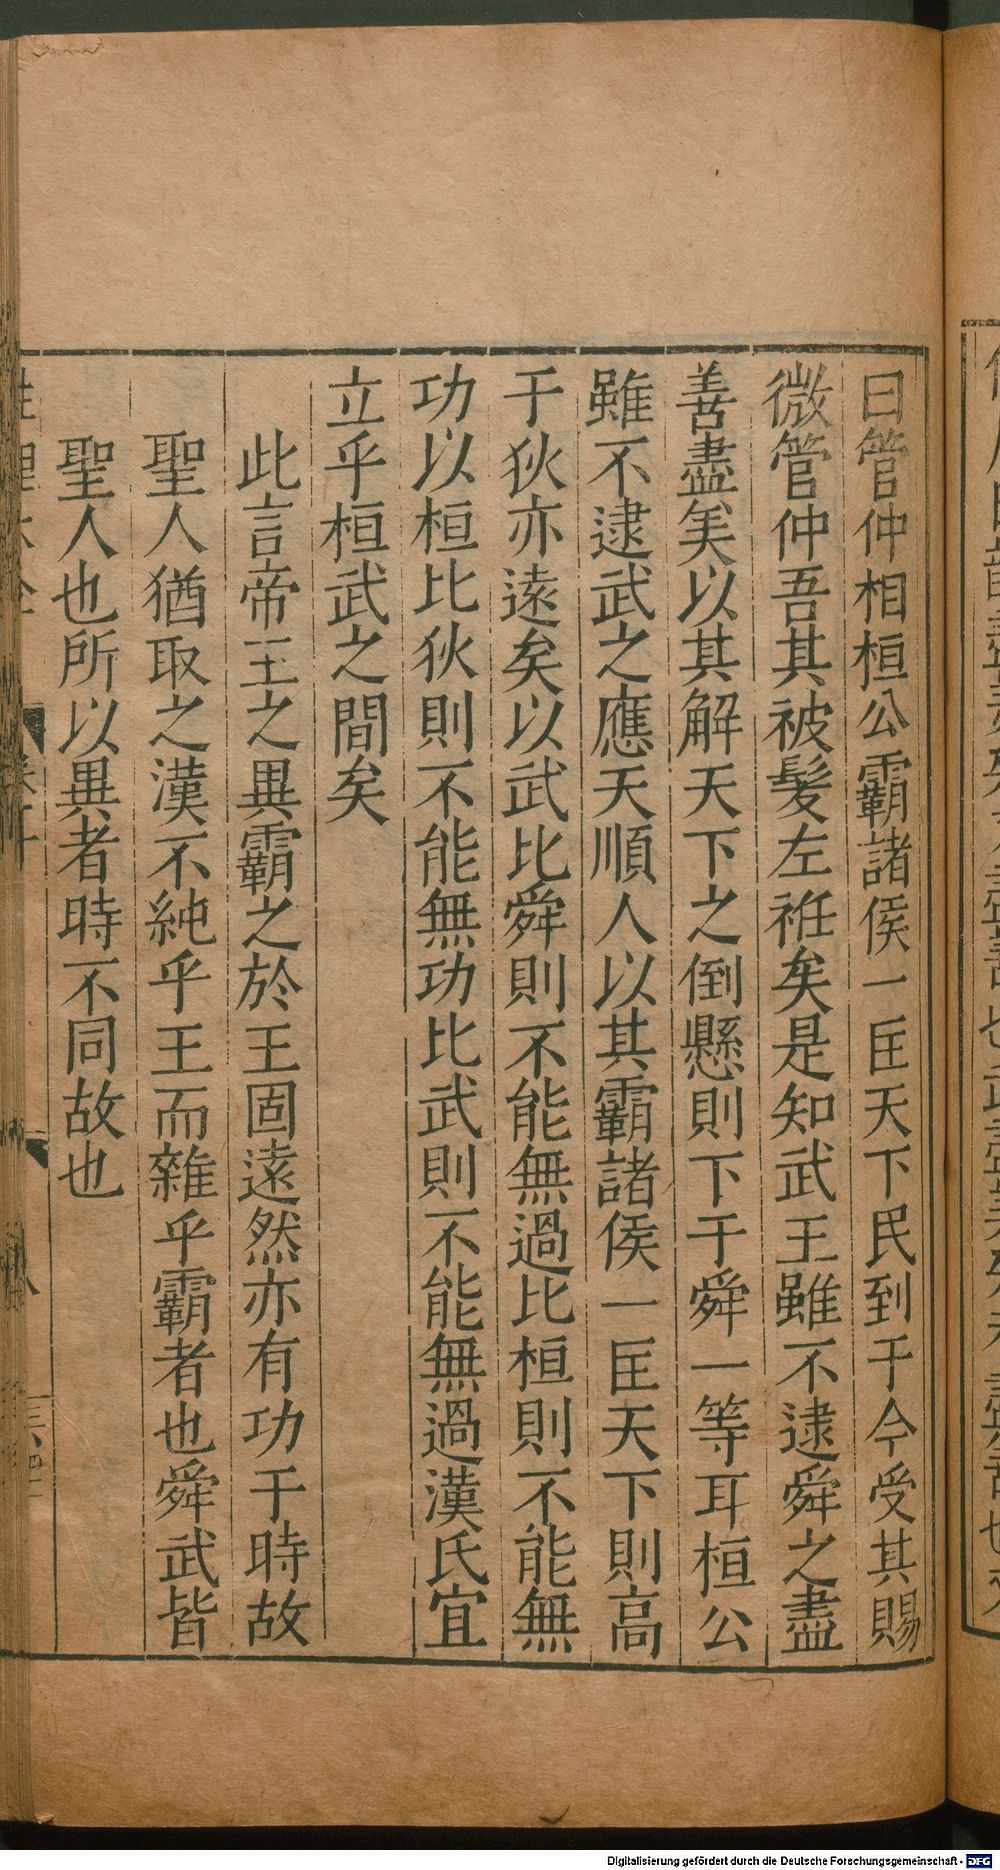 曰管仲相桓公霸諸侯一匡天下民到于今受其賜
微管仲吾其被髮左衽矣是知武王雖不逮舜之盡
善盡美以其解天下之倒懸則下于舜一等耳桓公
雖不逮武之應天順人以其霸諸侯一匡天下則高
于狄亦遠矣以武比舜則不能無過比桓則不能無
功以桓比狄則不能無功比武則不能無過漢氏宜
立乎桓武之間矣
此言帝王之異霸之於王固遠然亦有功于時故
聖人猶取之漢不純乎王而雜乎霸者也舜武皆
聖人也所以異者時不同故也
Digitalisierung gefördert durch die Deutsche Forschungsgemeinschaft - DFG